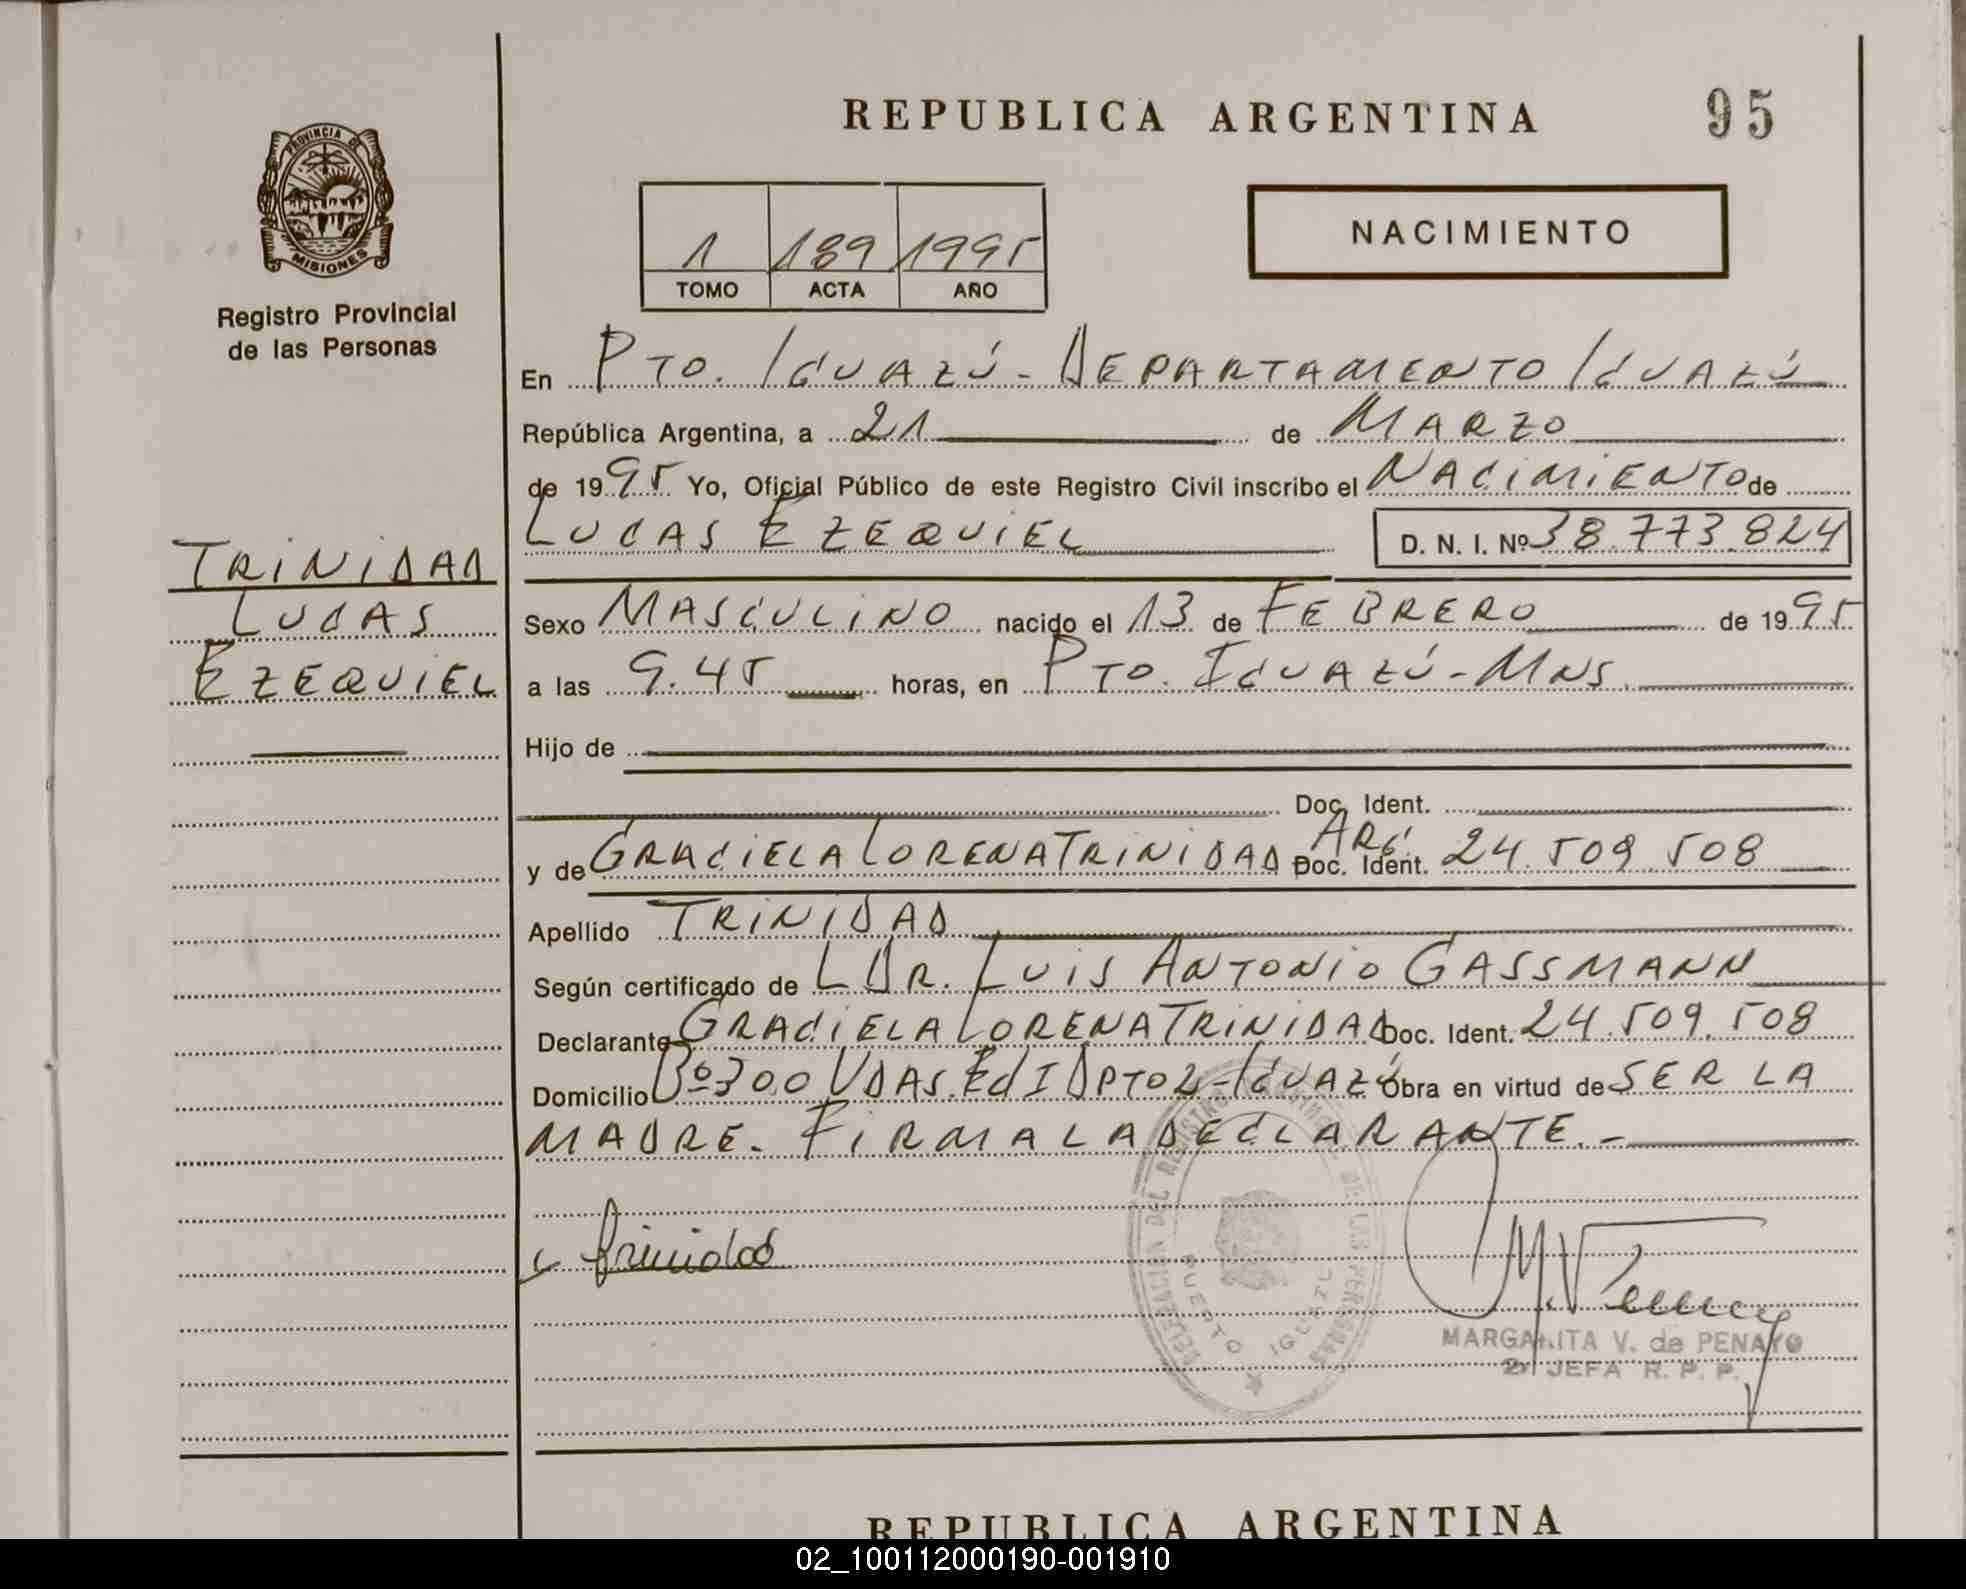 REPUBLICA ARGENTINA
95
PROVINCIA DE
MISIONES
Registro Provincial
de las Personas
1 189 1995
TOMO ACTA AÑO
NACIMIENTO
En PTO. IGUAZÚ - DEPARTAMENTO IGUAZÚ
República Argentina, a 21 de MARZO
de 1995 Yo, Oficial Público de este Registro Civil inscribo el NACIMIENTO de
LUCAS EZEQUIEL D. N. I. Nº 38.773.824
TRINIDAD
LUCAS
EZEQUIEL
Sexo MASCULINO nacido el 13 de FEBRERO de 1995
a las 9.45 horas, en PTO. IGUAZÚ - MNS.
Hijo de
Doc. Ident.
y de GRACIELA LORENA TRINIDAD ARG. Doc. Ident. 24.509.508
Apellido TRINIDAD
Según certificado de L DR. LUIS ANTONIO GASSMANN
Declarante GRACIELA LORENA TRINIDAD Doc. Ident. 24.509.508
Domicilio Bº 300 VDAS. EDI DPTO 2 - IGUAZÚ Obra en virtud de SER LA
MADRE. FIRMA LA DECLARANTE. -
Trinidad
DELEGACION DEL REGISTRO PROVINCIAL DE LAS PERSONAS
PUERTO IGUAZU
MARGARITA V. de PENAYO
2ª JEFA R. P. P.
REPUBLICA ARGENTINA
02_100112000190-001910